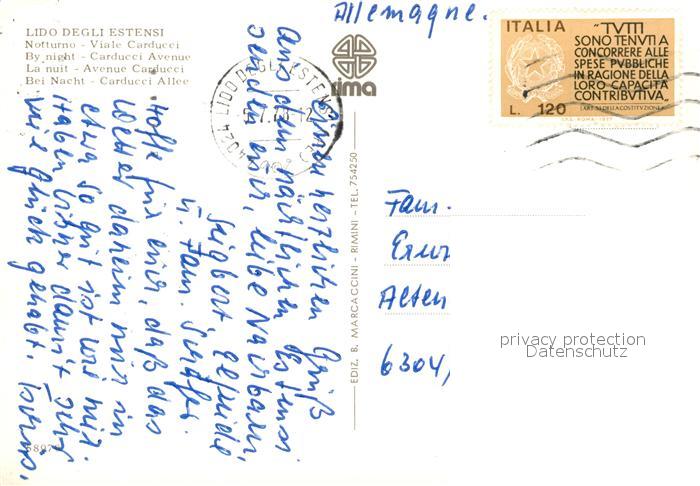 LIDO DEGLI ESTENSI
Notturno - Viale Carducci
By night - Carducci Avenue
La nuit - Avenue Carducci
Bei Nacht - Carducci Allee
rima
44024 LIDO DEGLI ESTENSI
Allemagne.
ITALIA
"TVTTI
SONO TENVTI A
CONCORRERE ALLE
SPESE PVBBLICHE
IN RAGIONE DELLA
LORO CAPACITÀ
CONTRIBVTIVA"
(ART. 53 DELLA COSTITUZIONE)
L. 120
I.P.S. ROMA 1977
Einen herzlichen Gruß
aus dem nächtlichen Estensi
senden euch, liebe Nachbarn,
Seigbert,
u. Fam.
Hoffe für euch, daß das
Wetter daheim nur in
etwa so gut ist wie hier.
Haben bisher damit sehr
viel Glück gehabt.
EDIZ. B. MARCACCINI - RIMINI - TEL. 754250
Fam.
Erns
Alten
6304,
privacy protection
Datenschutz